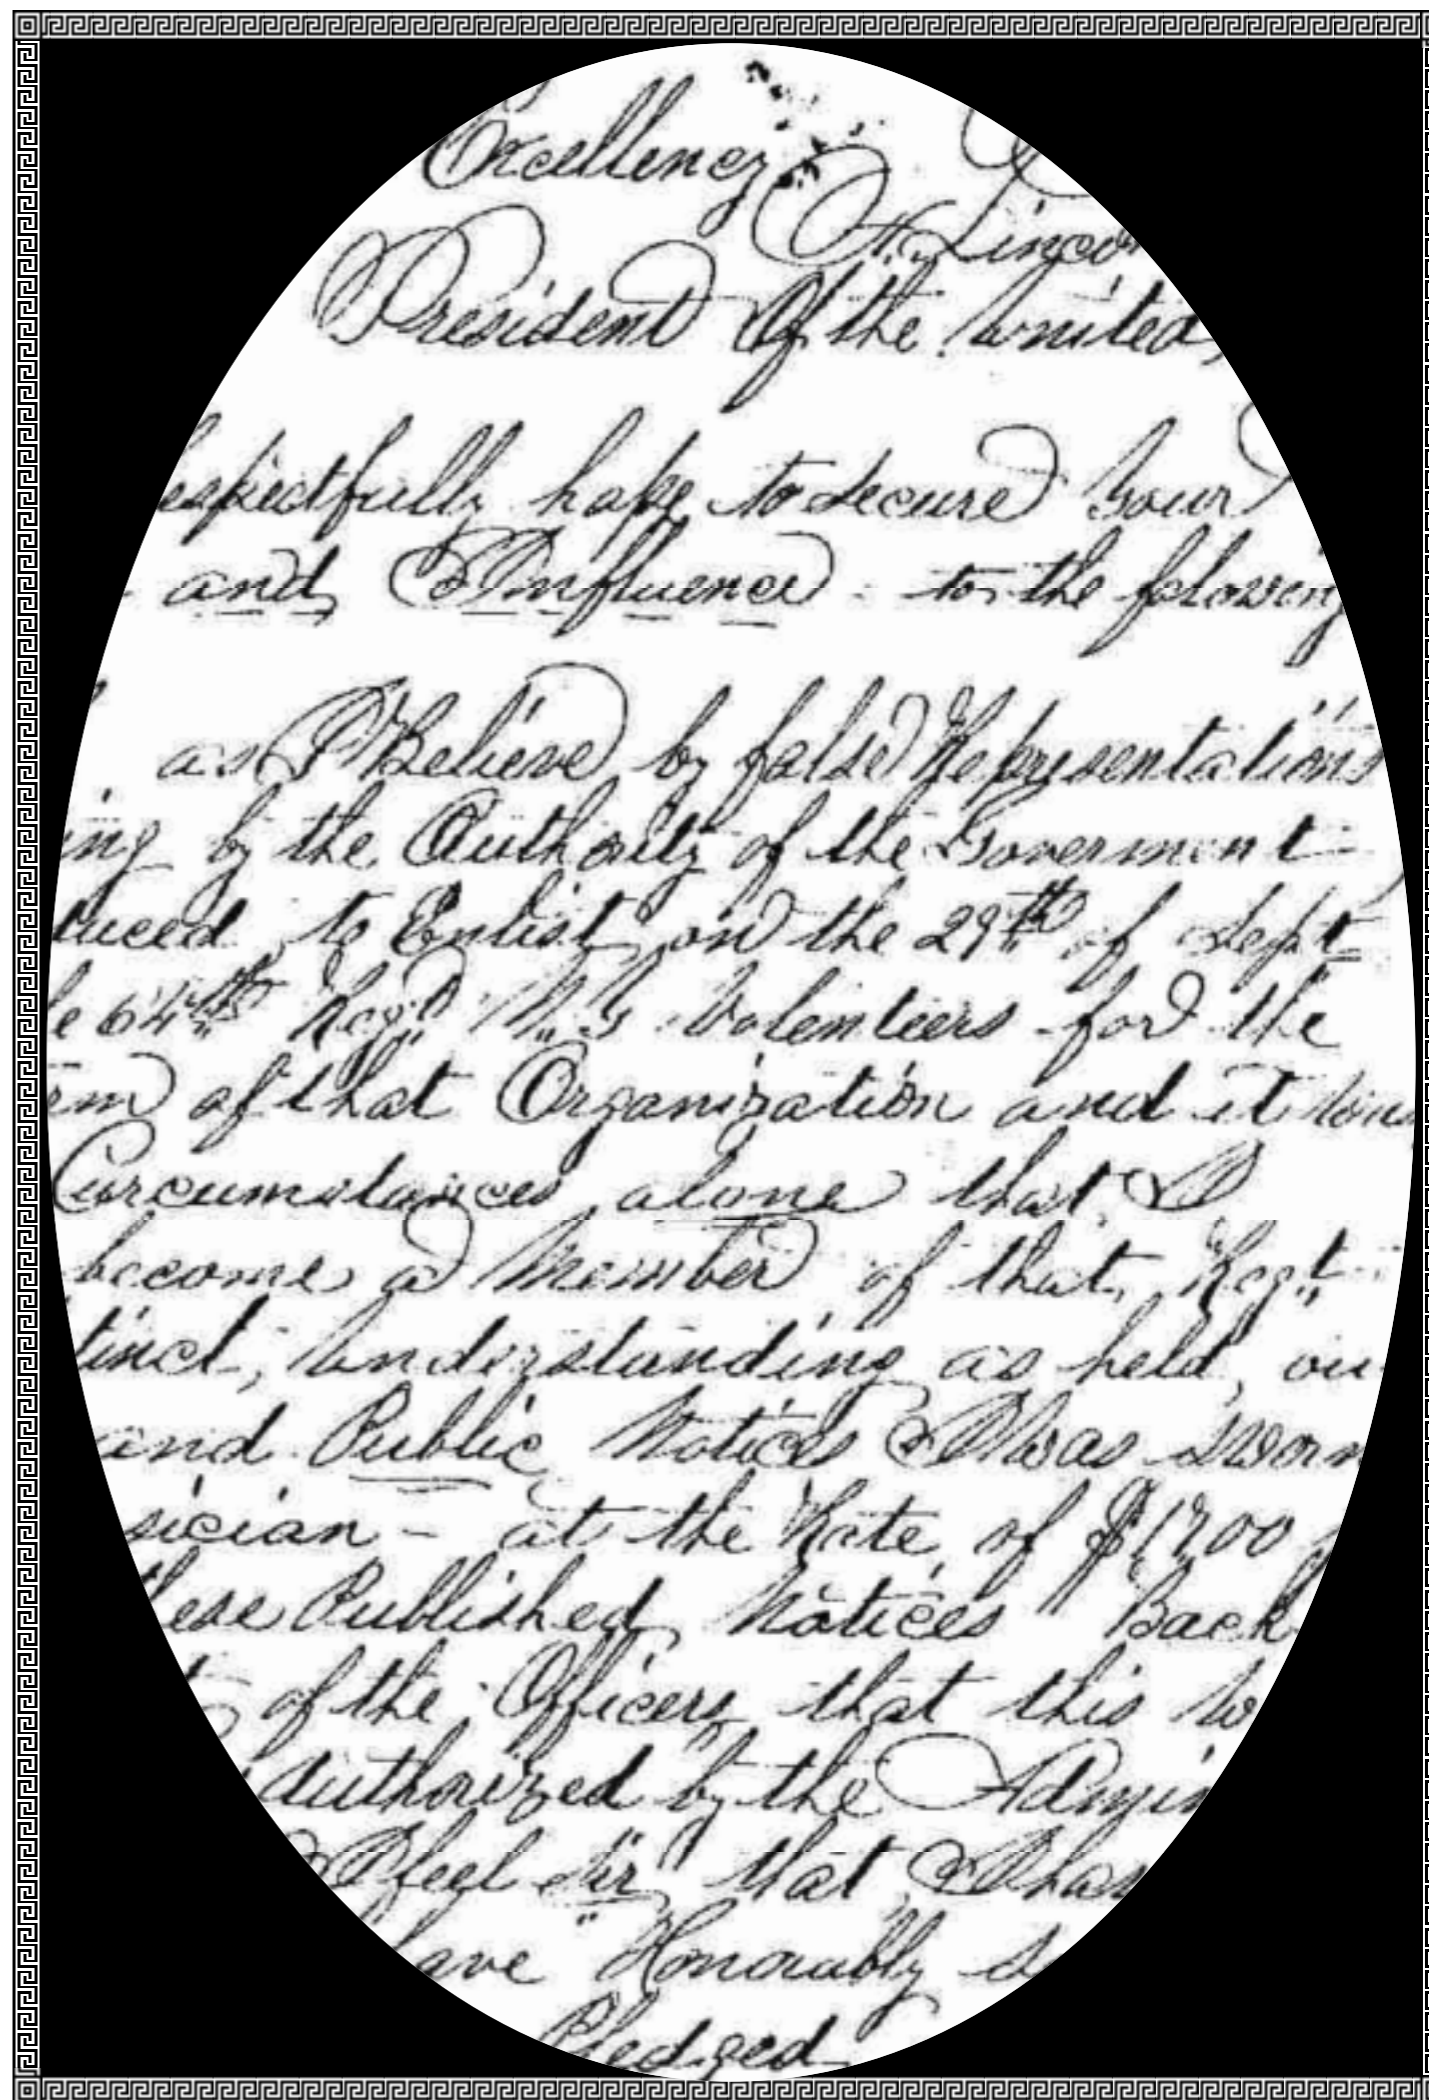 Excellency
A. Lincol
President Of the united,
espectfully hope to secure your
and Influence to the folowing
as I Believe by false Representations
ing by the Authority of the Goverment
duced to Enlist on the 29th of Sept
e 64th Regt N.Y Volenteers for the
erm of that Organization and it was
Circumstances alone that I
become a Member of that, Regt
tinct, understanding as held, ou
and Public Notices I was sworn
sician - at the Rate of $1700
these Published Notices Back
of the Officers that this w
Authorized by the Admin
I feel Sir" that I has
have Honorably s
Pledged